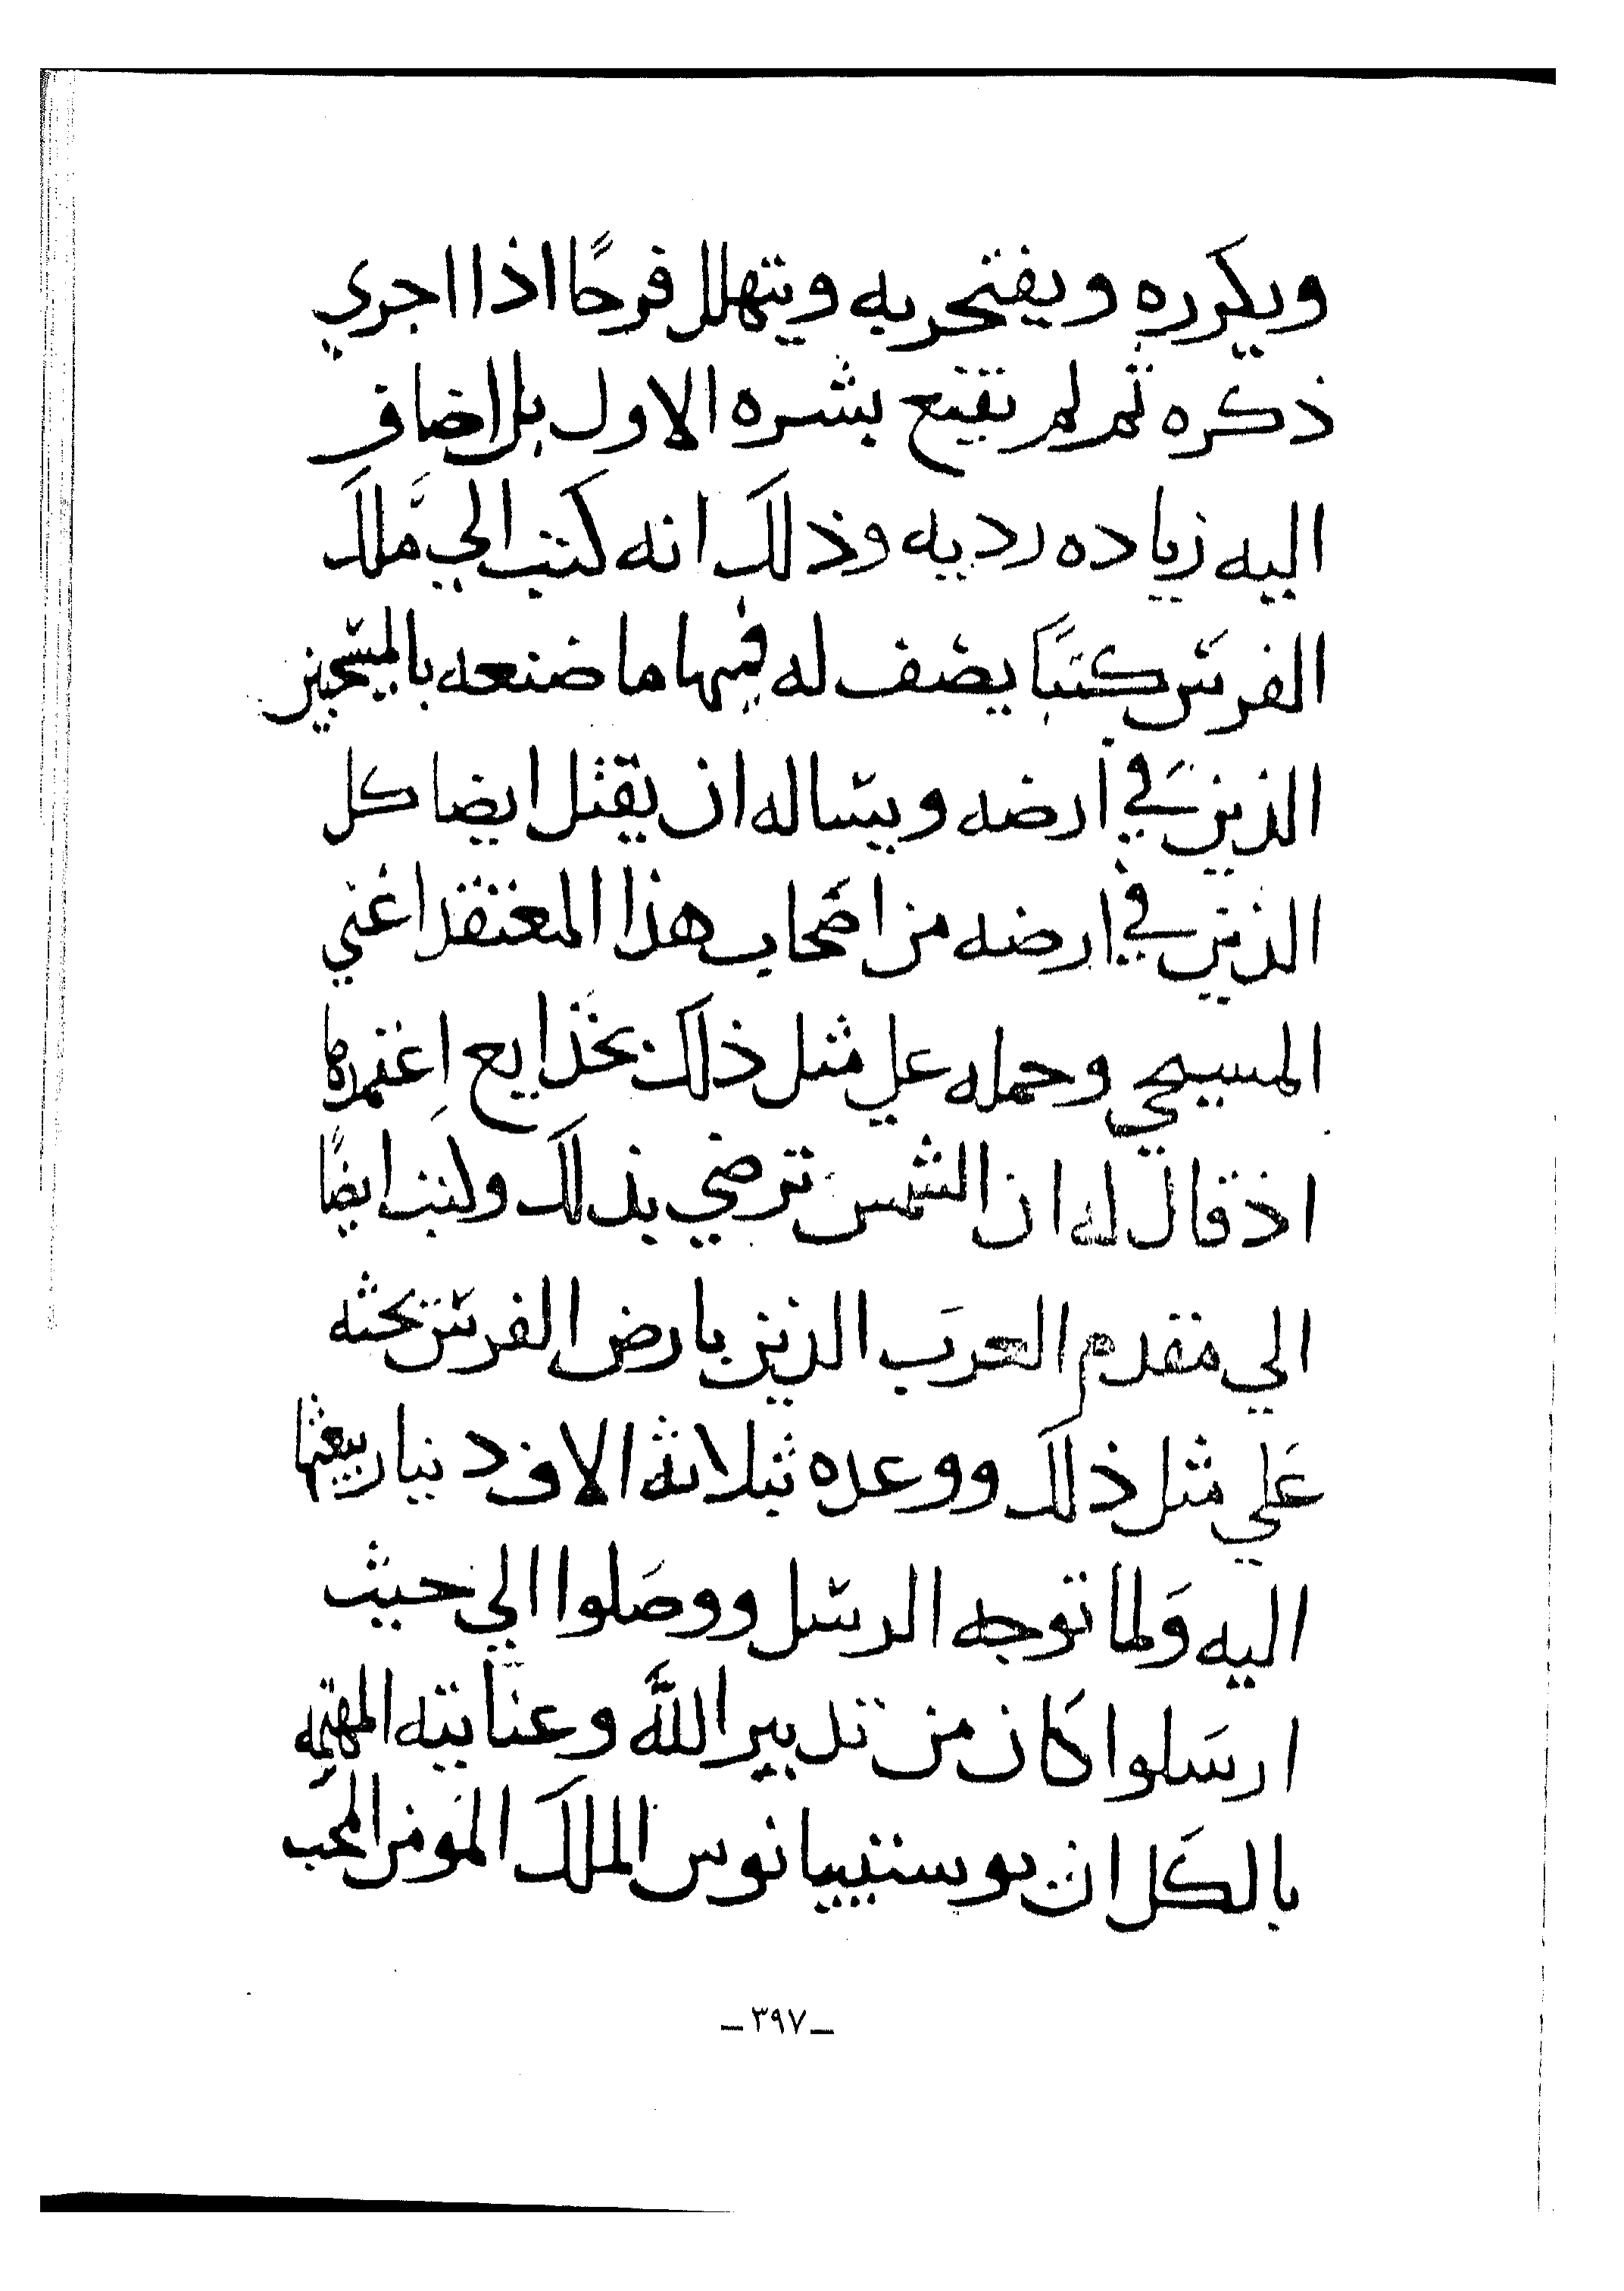 ويكرره ويفتخر به ويتهلل فرحًا اذا اجري
ذكره ثم لم يقنع بشره الاول بل اضاف
اليه زياده رديه وذلك انه كتب الي ملك
الفرس كتبًا يصف له فيها ما صنعه بالمسيحيين
الذين في ارضه ويساله ان يقتل ايضا كل
الذين في ارضه من اصحاب هذا المعتقد اعني
المسيحي وحمله علي مثل ذلك بخدايع اعتمدها
اذ قال له ان الشمس ترضي بذلك وكتب ايضًا
الي مقدم العرب الذين بارض الفرس يحثه
علي مثل ذلك ووعده بثلاثة الاف دينار يبعثها
اليه ولما توجه الرسل ووصلوا الي حيث
ارسلوا كان من تدبير الله وعنايته المهتمه
بالكل ان يوستينيانوس الملك المومن المحب
-٣٩٧-